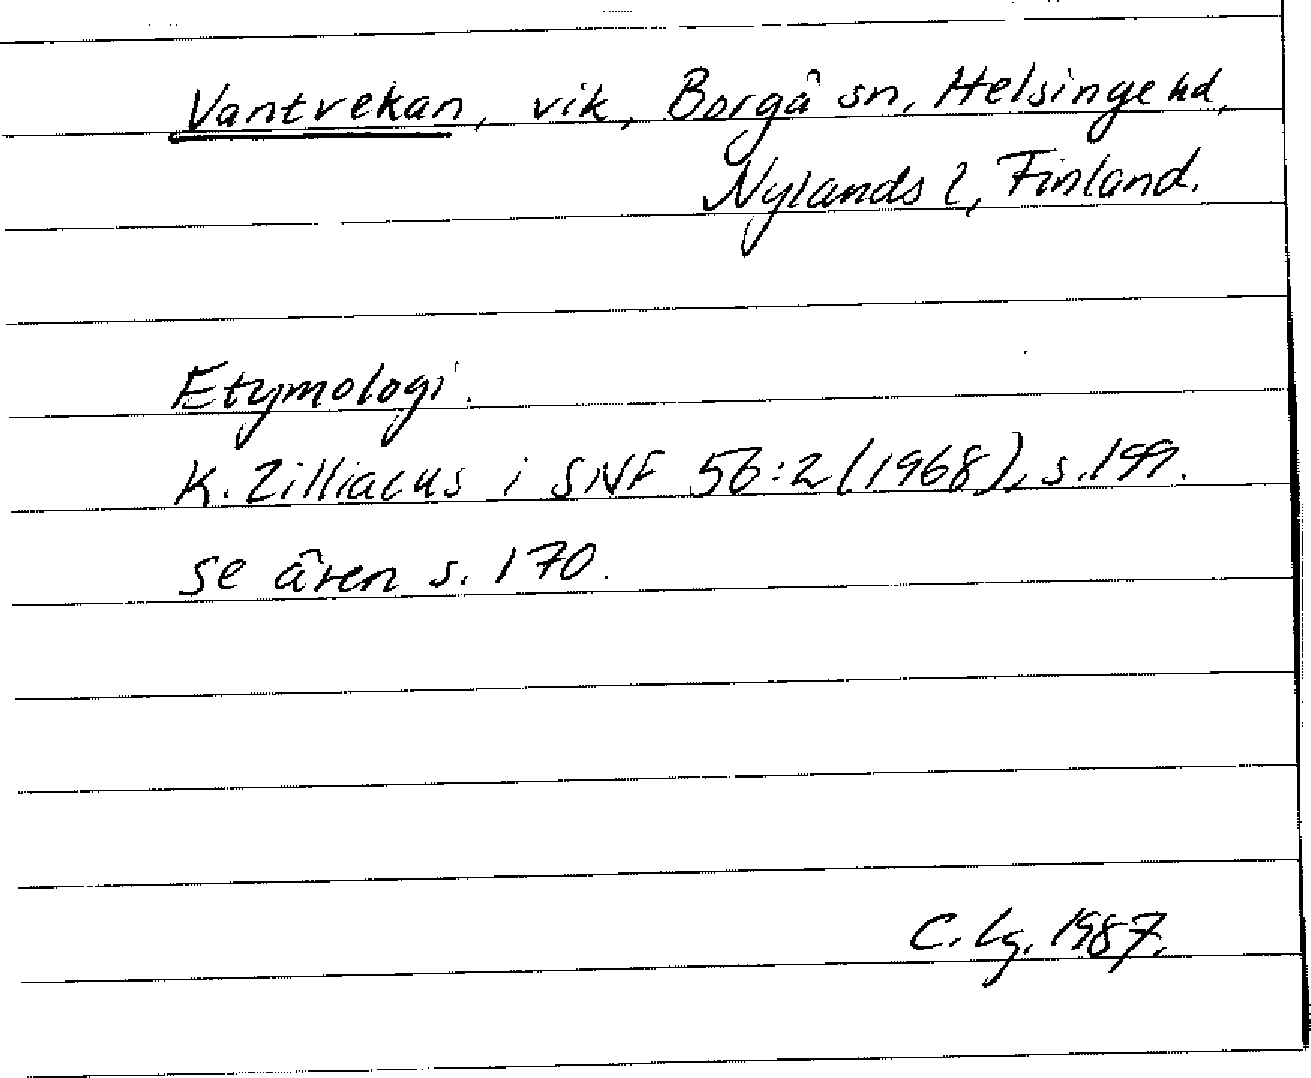 Vantrekan, vik, Borgå sn, Helsinge hd,
Nylands l, Finland.
Etymologi.
K. Zilliacus i SNF 56:2 (1968), s. 199.
se även s. 170.
C. Lg. 1987.